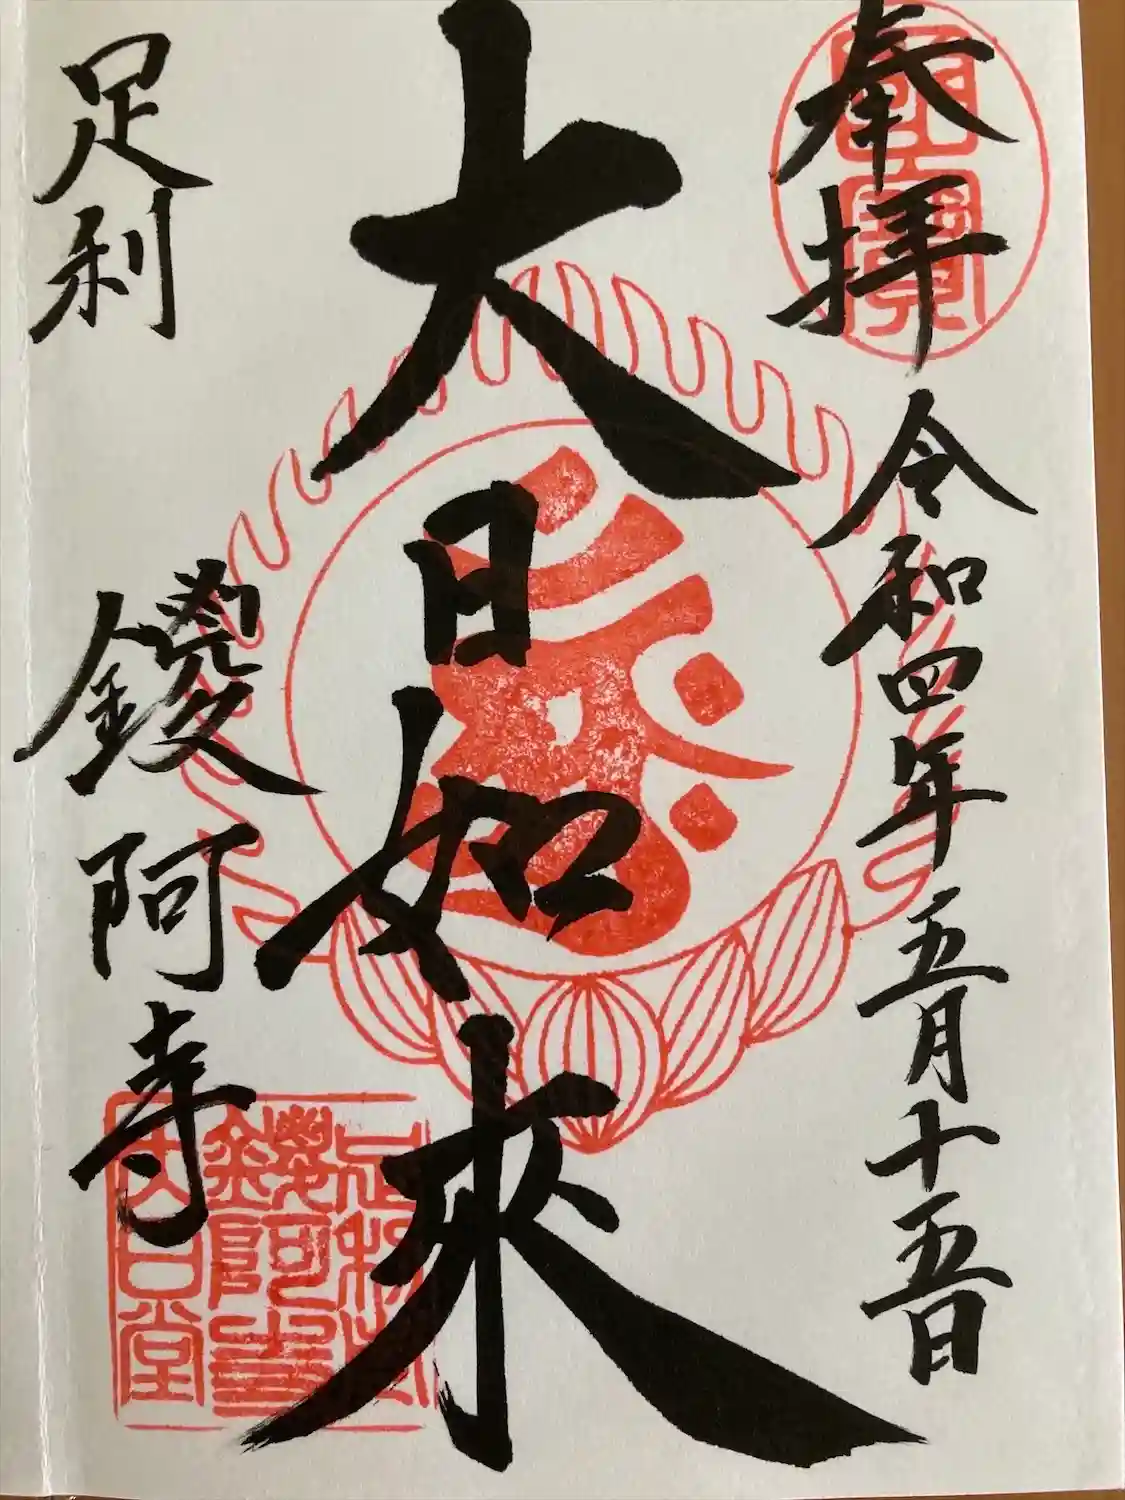 奉拝
令和四年五月十五日
大日如来
足利
鑁阿寺
鑁阿寺
大日堂